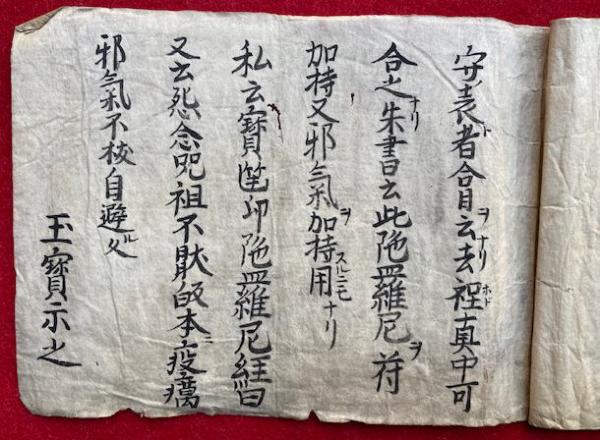 守者云ナリ去程ホド真中可
合之ナリ朱書云此陀羅尼ヲ符
加持又邪氣ヲ加持用スルニモナリ
私云寳篋印陀羅尼経曰
又云怨念咒祖不皈本ニ疫癘
邪氣不自避ル
玉寳示之